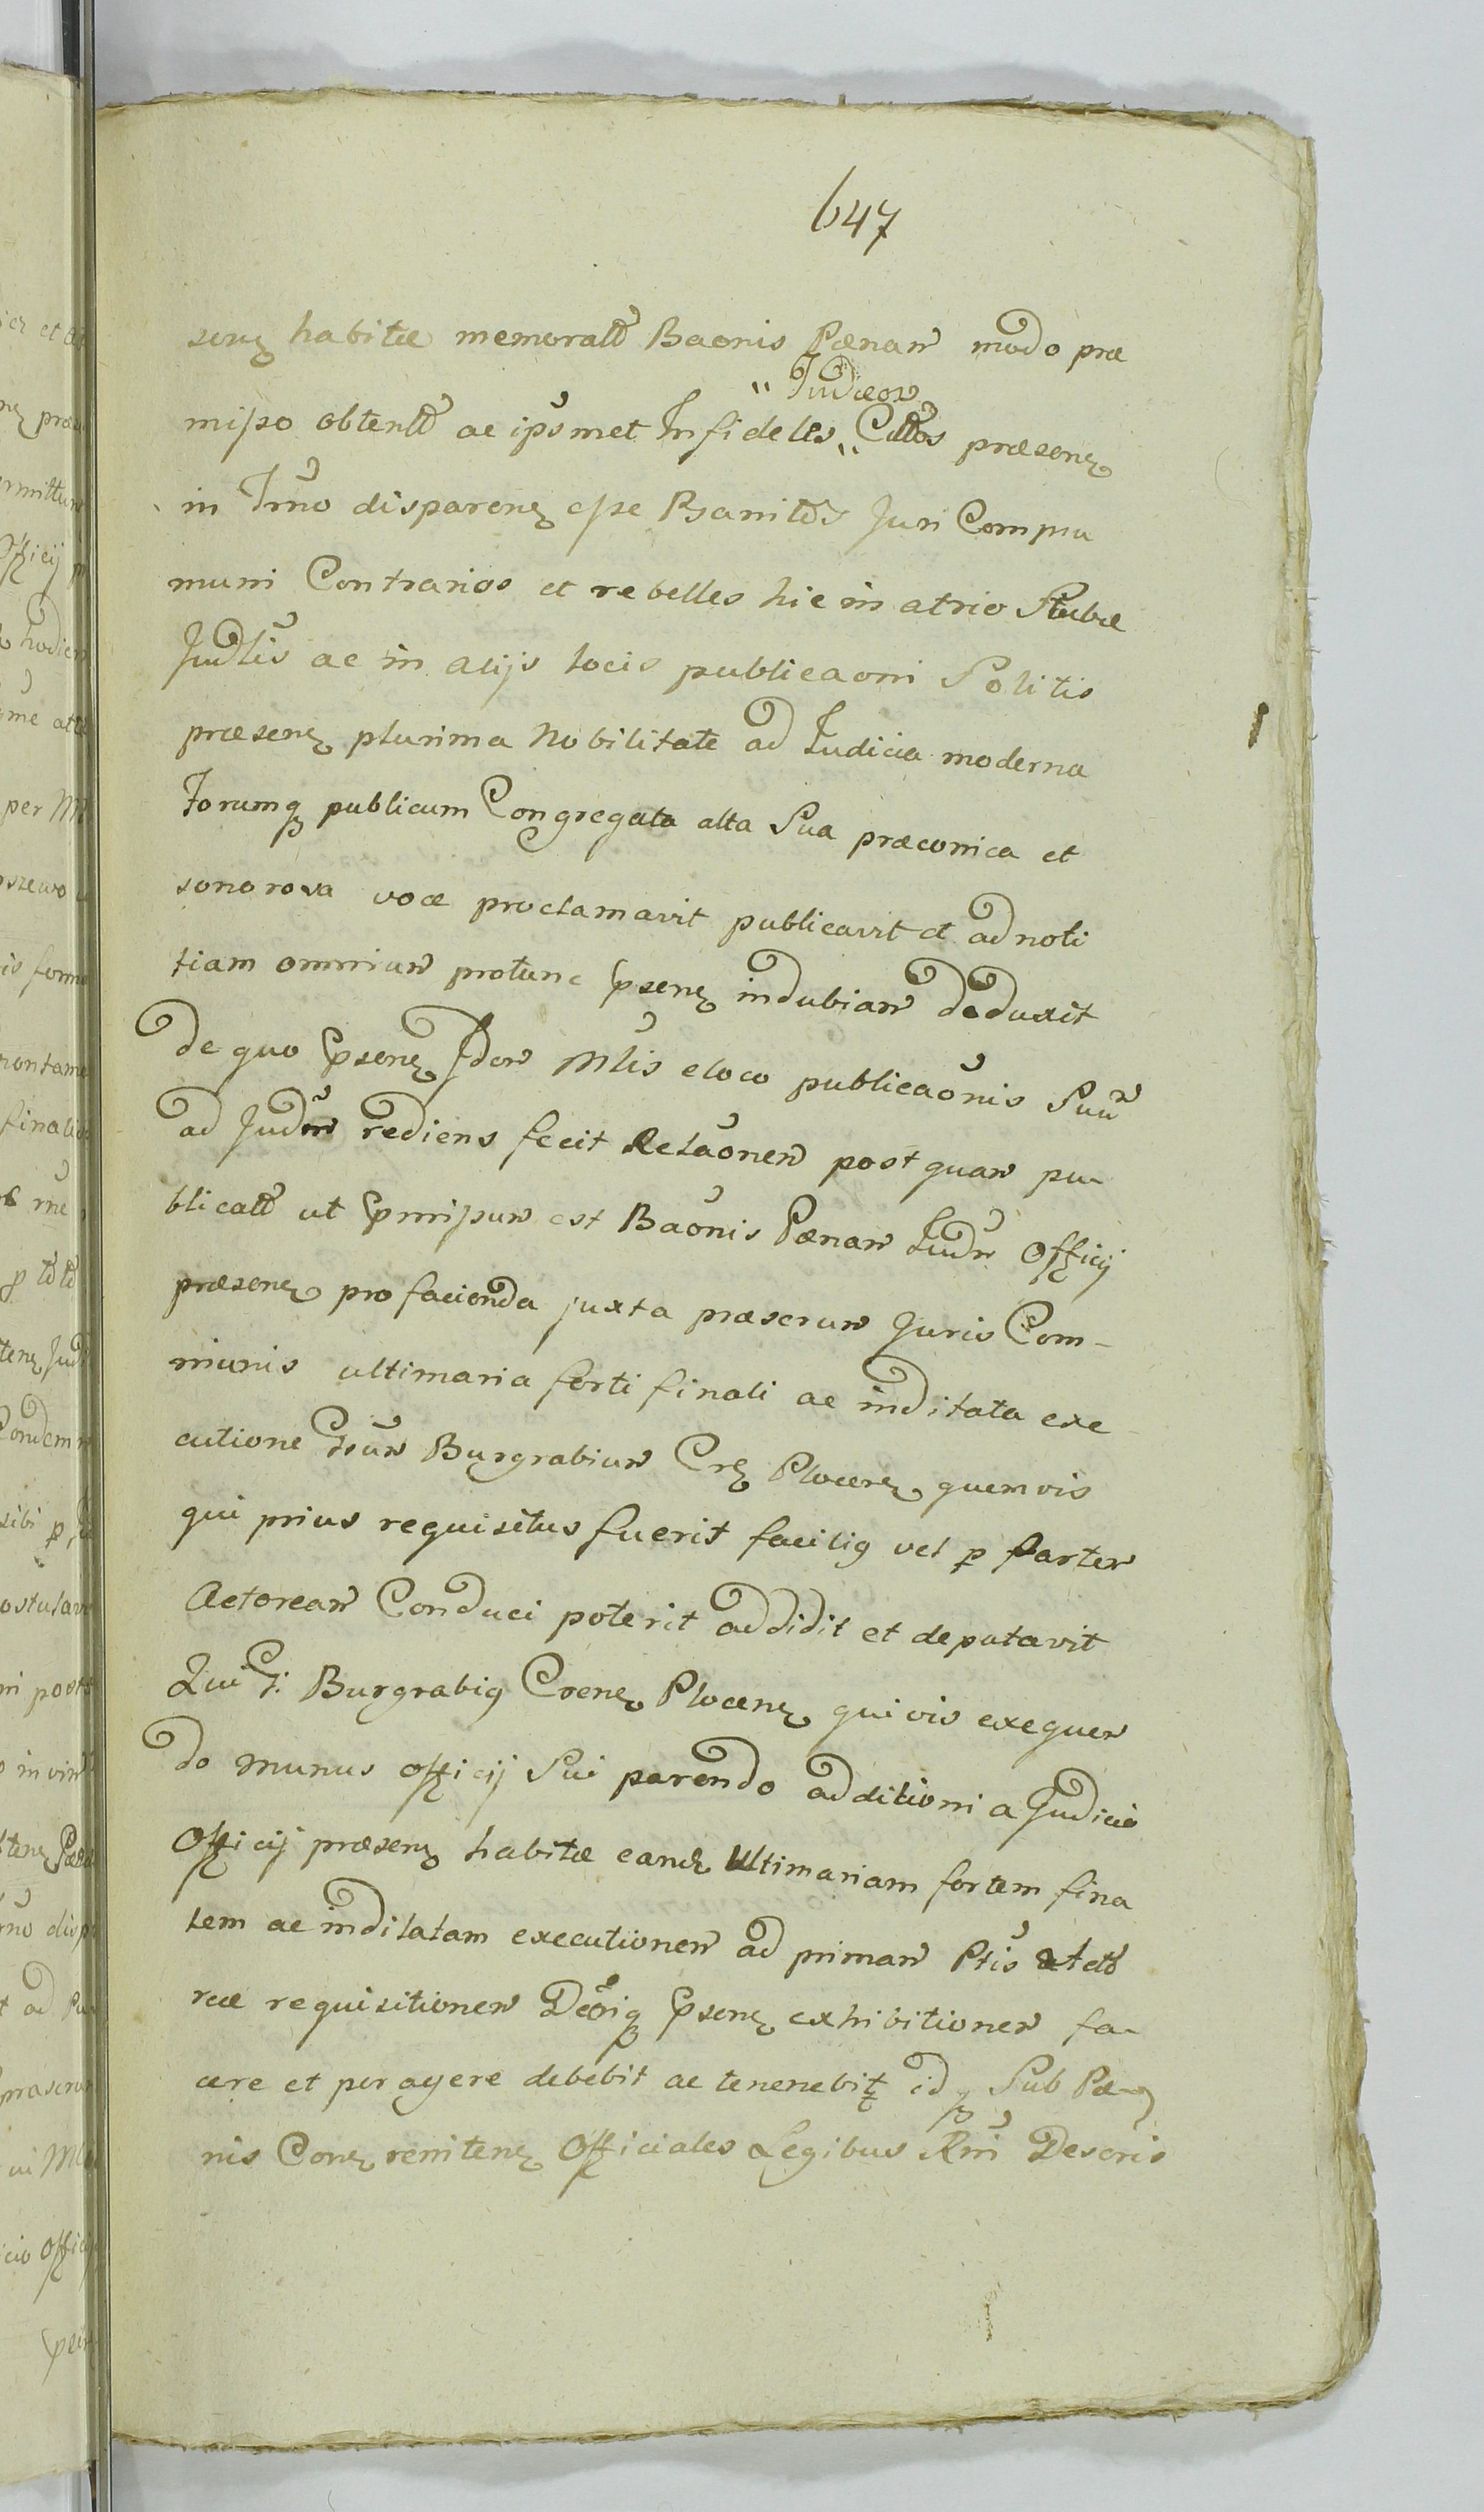 647
senꝫ habitæ memoratt Baonis Pænam modo præ
" Judæos
misso obtentt ac ipsmet Infideles " Cittos præsenꝫ
in Trno disparenꝫ esse Bannitos Juri Compu
muni Contrarios et rebelles hic in atrio Stubæ
Judlis ac in alijs locis publicaoni Solitis
præsenꝫ plurima Nobilitate ad Judicia moderna
Forumqꝫ publicum Congregata alta Sua præconica et
sonorosa voce proclamavit publicavit et ad noti
tiam omnium protunc pnsenꝫ indubiam deduxit
de quo psenꝫ Idem Mlis eloco publicaonis Suu
ad Judm rediens fecit Relaonem post quam pu
blicatt ut pmissum est Baonis Pænam Judm Officij
præsenꝫ pro facienda juxta præscrum Juris Com-
munis ultimaria forti finali ac indilata exe
cutione Gsum Burgrabium Crꝫ Plocenꝫ quemvis
qui prius requisitus fuerit faciliꝫ vel p Partem
Actoream Conduci poterit addidit et deputavit
Qui G: Burgrabiꝫ Crenꝫ Plocenꝫ quivis exequen
do munus officij Sui parendo additioni a Judicio
Officij præsenꝫ habitæ eandꝫ Ultimariam fortem fina
lem ac indilatam executionem ad primam Ptis Acto
reæ requisitionem Decriqꝫ psenꝫ exhibitionem fa-
cere et peragere debebit ac tenenebitꝫ idqꝫ Sub Pæ-
nis Conꝫ renitenꝫ Officiales Legibus Rni Descris